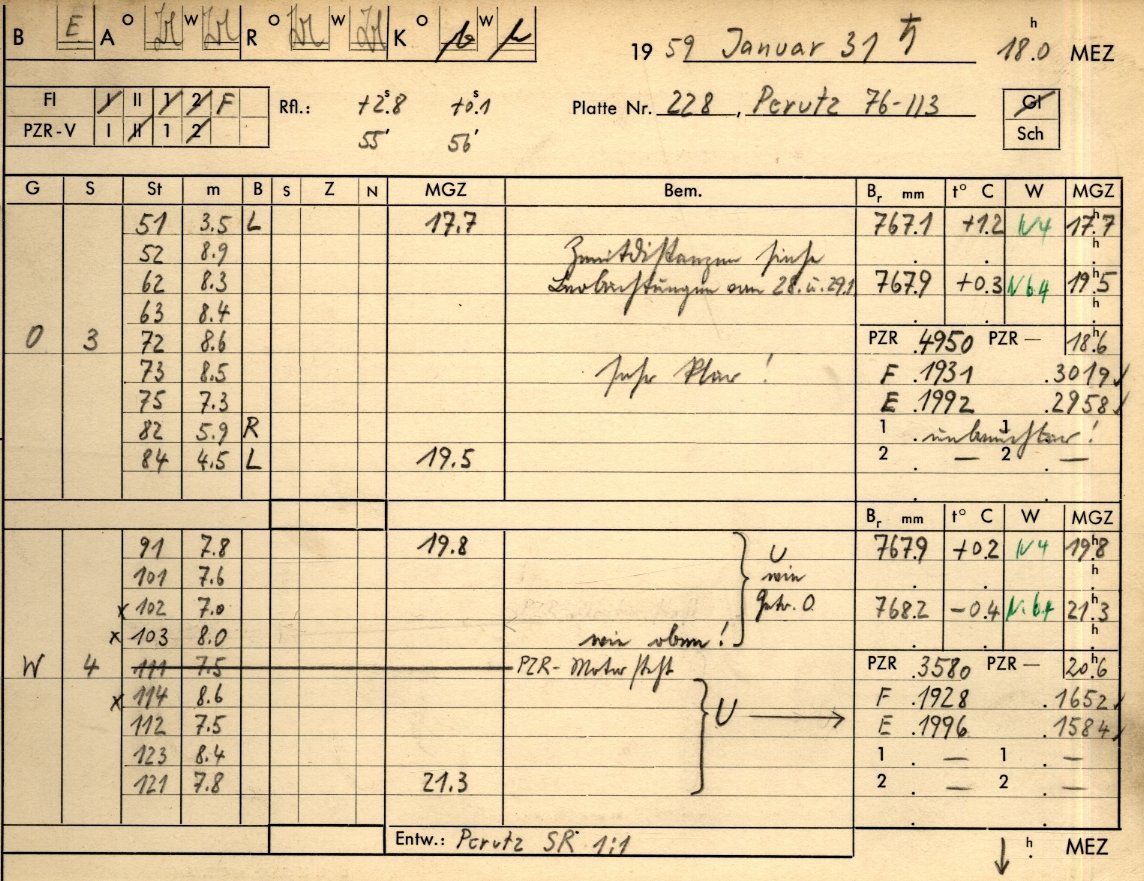 B E A O W R O W K O W 1959 Januar 31 ♄ 18.0 h MEZ
Fl I II 1 2 F Rfl.: +2.8 s +0.1 s Platte Nr. 228, Perutz 76-113 Gl
PZR-V I II 1 2 55' 56' Sch
G S St m B S Z N MGZ Bem. Br mm t° C W MGZ
51 3.5 L 17.7 767.1 +1.2 N4 17.7 h
52 8.9 Zenitdistanzen siehe . . h
62 8.3 Beobachtungen vom 28. u. 29.1 767.9 +0.3 Nb4 19.5 h
63 8.4 . . h
O 3 72 8.6 PZR .4950 PZR — 18.6 h
73 8.5 sehr klar! F .1931 .3019
75 7.3 E .1992 .2958
82 5.9 R 1 . unbeleuchtbar! 1
84 4.5 L 19.5 2 . — 2 . —
Br mm t° C W MGZ
91 7.8 19.8 U 767.9 +0.2 N4 19.8 h
101 7.6 wie . . h
x 102 7.0 Gestr. O. 768.2 -0.4 Nb4 21.3 h
x 103 8.0 wie oben! . . h
W 4 111 7.5 PZR-Motor steht PZR .3580 PZR — 20.6 h
x 114 8.6 U → F .1928 .1652
112 7.5 E .1996 .1584
123 8.4 1 . — 1 . —
121 7.8 21.3 2 . — 2 . —
Entw.: Perutz SR 1:1 ↓ h . MEZ